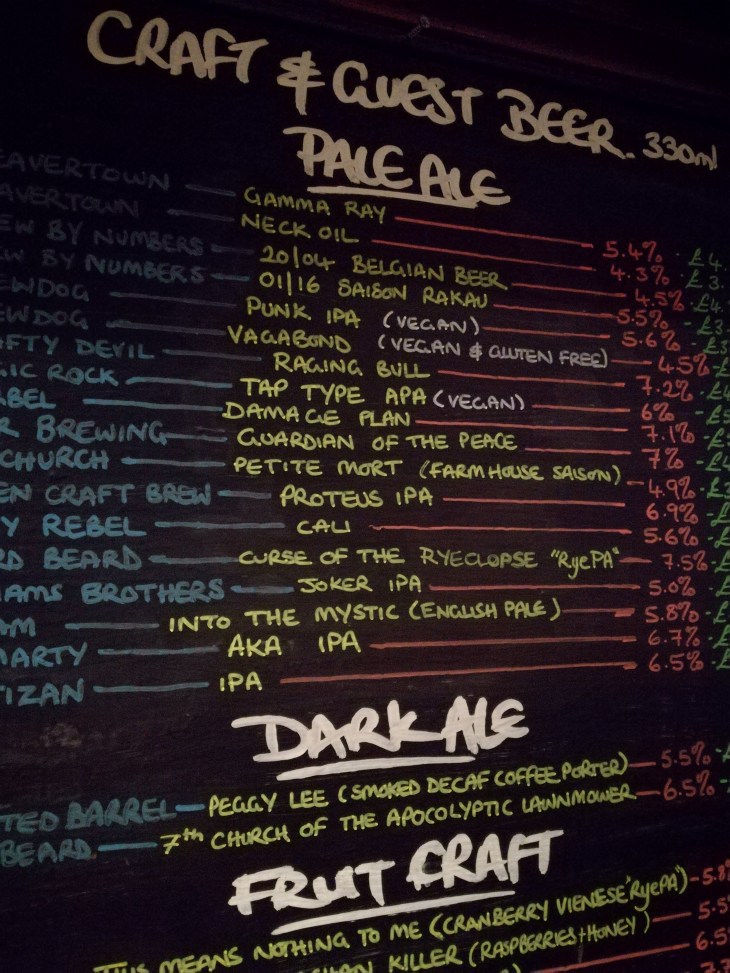 CRAFT & GUEST BEER. 330ml
PALE ALE
EAVERTOWN — GAMMA RAY — 5.4% · £4.
AVERTOWN — NECK OIL — 4.3% · £3.
EW BY NUMBERS — 20/04 BELGIAN BEER — 4.5% · £4.
EW BY NUMBERS — 01/16 SAISON RAKAU — 5.5% · £3.
EWDOG — PUNK IPA (VEGAN) — 5.6% · £3
EWDOG — VAGABOND (VEGAN & GLUTEN FREE) — 4.5% · £
FTY DEVIL — RAGING BULL — 7.2% · £
GIC ROCK — TAP TYPE APA (VEGAN) — 6% · £
BEL — DAMAGE PLAN — 7.1% · £
R BREWING — GUARDIAN OF THE PEACE — 7% · £
CHURCH — PETITE MORT (FARMHOUSE SAISON) — 4.9% · £
EN CRAFT BREW — PROTEUS IPA — 6.9% · £
Y REBEL — CALI — 5.6% · £
RD BEARD — CURSE OF THE RYECLOPSE "RyePA" — 7.5% · £
IAMS BROTHERS — JOKER IPA — 5.0% · £
AM — INTO THE MYSTIC (ENGLISH PALE) — 5.8% · £
MARTY — AKA IPA — 6.7% · £
TIZAN — IPA — 6.5% · £
DARK ALE
TED BARREL — PEGGY LEE (SMOKED DECAF COFFEE PORTER) — 5.5% ·
BEARD — 7th CHURCH OF THE APOCOLYPTIC LAWNMOWER — 6.5% ·
FRUIT CRAFT
THIS MEANS NOTHING TO ME (CRANBERRY VIENIESE "RyePA") - 5.8%
KILLER (RASPBERRIES + HONEY) — 5.5
6.5